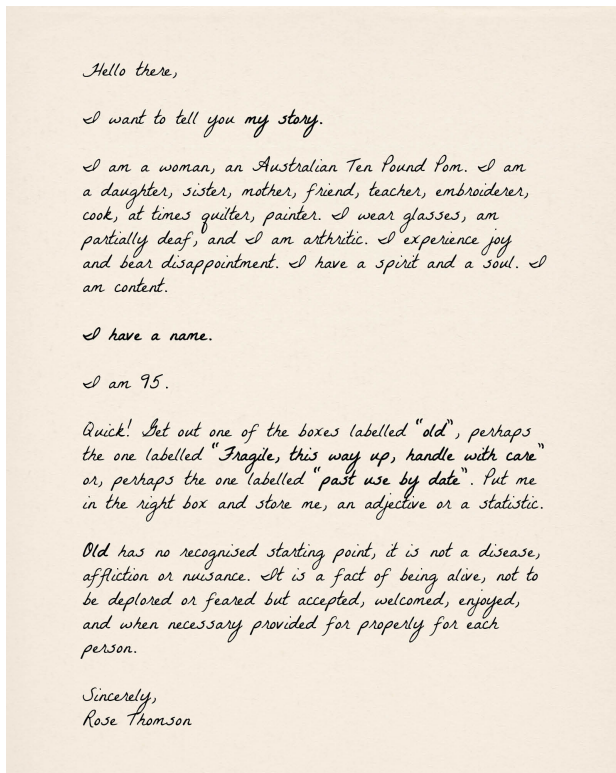 Hello there,
I want to tell you my story.
I am a woman, an Australian Ten Pound Pom. I am
a daughter, sister, mother, friend, teacher, embroiderer,
cook, at times quilter, painter. I wear glasses, am
partially deaf, and I am arthritic. I experience joy
and bear disappointment. I have a spirit and a soul. I
am content.
I have a name.
I am 95.
Quick! Get out one of the boxes labelled "old", perhaps
the one labelled "Fragile, this way up, handle with care"
or, perhaps the one labelled "past use by date". Put me
in the right box and store me, an adjective or a statistic.
Old has no recognised starting point, it is not a disease,
affliction or nuisance. It is a fact of being alive, not to
be deplored or feared but accepted, welcomed, enjoyed,
and when necessary provided for properly for each
person.
Sincerely,
Rose Thomson